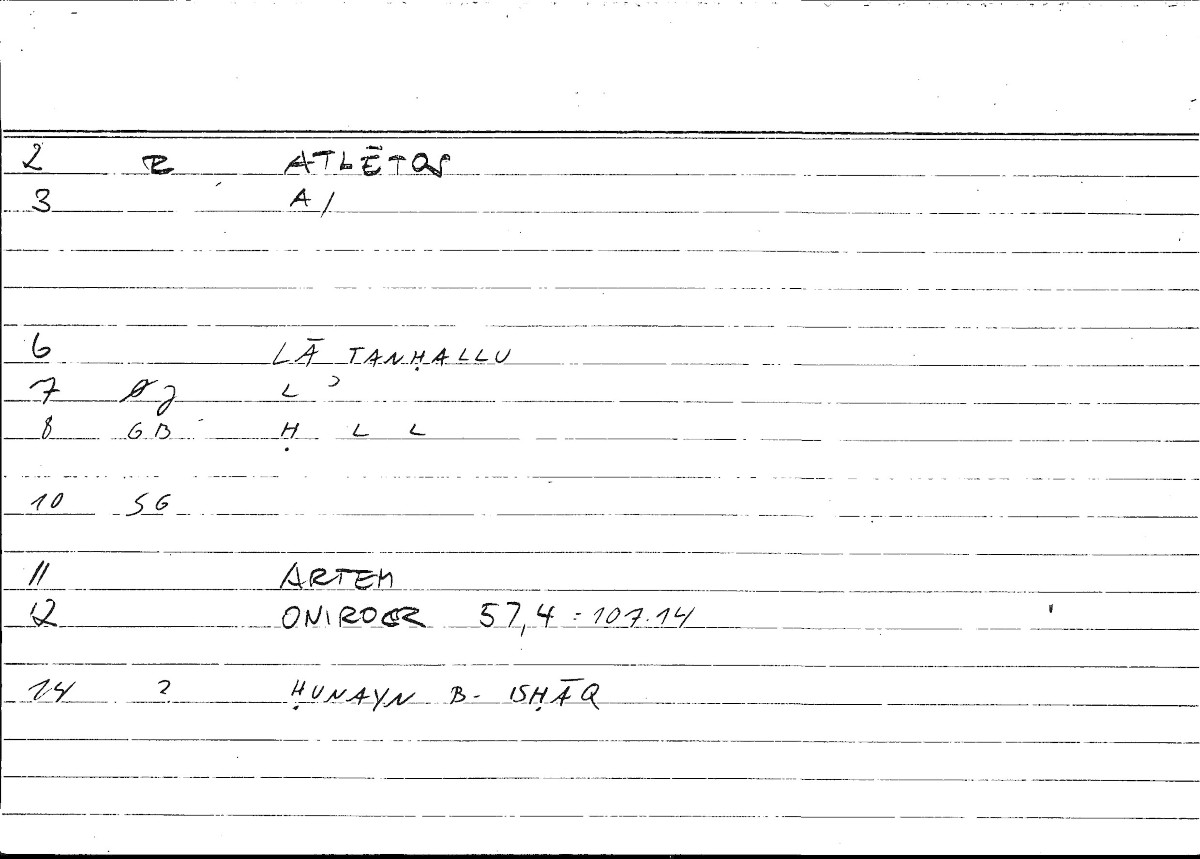 2 E ATLĒTOS
3 A /
6 LĀ TANḤALLU
7 L ʾ
8 GB Ḥ L L
10 SG
11 ARTEM
12 ONIROCR 57,4 = 107.14
14 2 ḤUNAYN B- ISḤĀQ